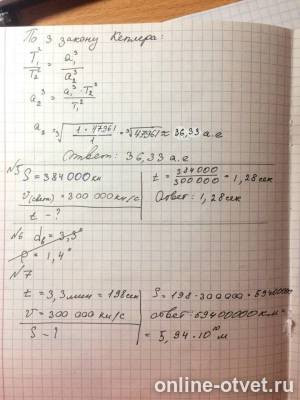 По 3 закону Кеплера:
T₁²/T₂² = a₁³/a₂³
a₂³ = a₁³ · T₂²/T₁²
a₂ = ³√(1 · 47961/1) = ³√47961 ≈ 36,33 а.е
Ответ: 36,33 а.е
№5
S = 384000 км
V(свет) = 300 000 км/с
t - ?
t = 384000/300000 = 1,28 сек
Ответ: 1,28 сек
№6
= 3,3"
= 1,4"
№7
t = 3,3 мин = 198 сек
V = 300 000 км/с
S - ?
S = 198 · 300000 = 59400000
ответ: 59400000 км =
= 5,94 · 10¹⁰ м
online-otvet.ru